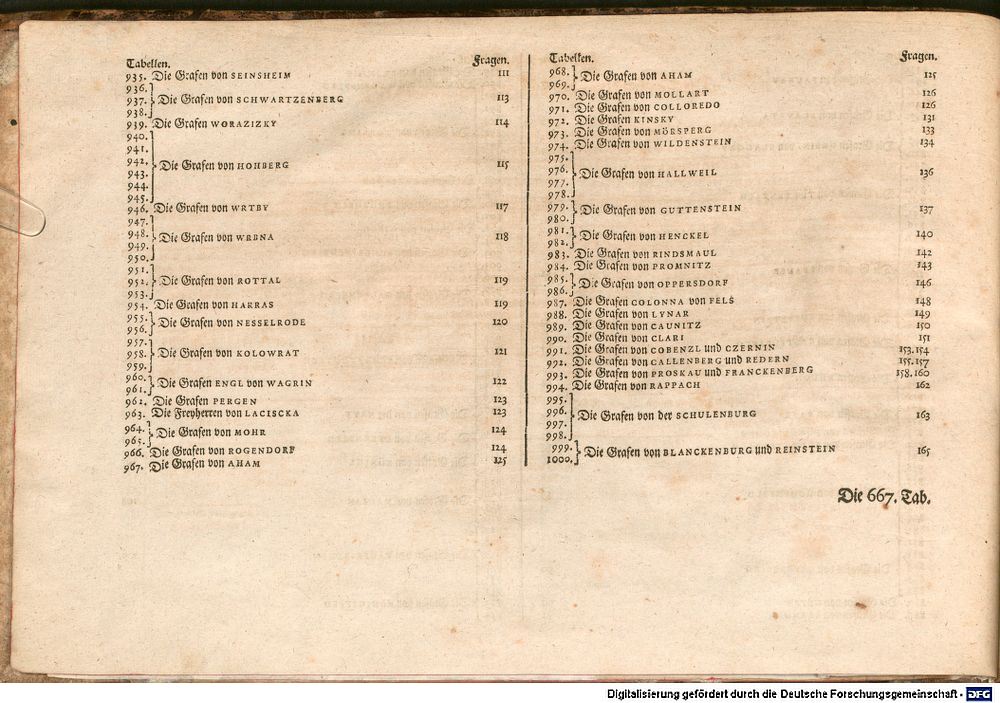 Tabellen. Fragen.
935. Die Grafen von SEINSHEIM 111
936.
937. Die Grafen von SCHWARTZENBERG 113
938.
939. Die Grafen WORAZIZKY 114
940.
941.
942. Die Grafen von HOHBERG 115
943.
944.
945.
946. Die Grafen von WRTBY 117
947.
948. Die Grafen von WRBNA 118
949.
950.
951.
952. Die Grafen von ROTTAL 119
953.
954. Die Grafen von HARRAS 119
955. Die Grafen von NESSELRODE 120
956.
957.
958. Die Grafen von KOLOWRAT 121
959.
960. Die Grafen ENGL von WAGRIN 122
961.
962. Die Grafen PERGEN 123
963. Die Freyherren von LACISCKA 123
964. Die Grafen von MOHR 124
965.
966. Die Grafen von ROGENDORF 124
967. Die Grafen von AHAM 125
Tabellen. Fragen.
968. Die Grafen von AHAM 125
969.
970. Die Grafen von MOLLART 126
971. Die Grafen von COLLOREDO 126
972. Die Grafen KINSKY 131
973. Die Grafen von MÖRSPERG 133
974. Die Grafen von WILDENSTEIN 134
975.
976. Die Grafen von HALLWEIL 136
977.
978.
979. Die Grafen von GUTTENSTEIN 137
980.
981. Die Grafen von HENCKEL 140
982.
983. Die Grafen von RINDSMAUL 142
984. Die Grafen von PROMNITZ 143
985. Die Grafen von OPPERSDORF 146
986.
987. Die Grafen COLONNA von FELS 148
988. Die Grafen von LYNAR 149
989. Die Grafen von CAUNITZ 150
990. Die Grafen von CLARI 151
991. Die Grafen von COBENZL und CZERNIN 153.154
992. Die Grafen von CALLENBERG und REDERN 155.157
993. Die Grafen von PROSKAU und FRANCKENBERG 158.160
994. Die Grafen von RAPPACH 162
995.
996. Die Grafen von der SCHULENBURG 163
997.
998.
999. Die Grafen von BLANCKENBURG und REINSTEIN 165
1000.
Die 667. Tab.
Digitalisierung gefördert durch die Deutsche Forschungsgemeinschaft - DFG